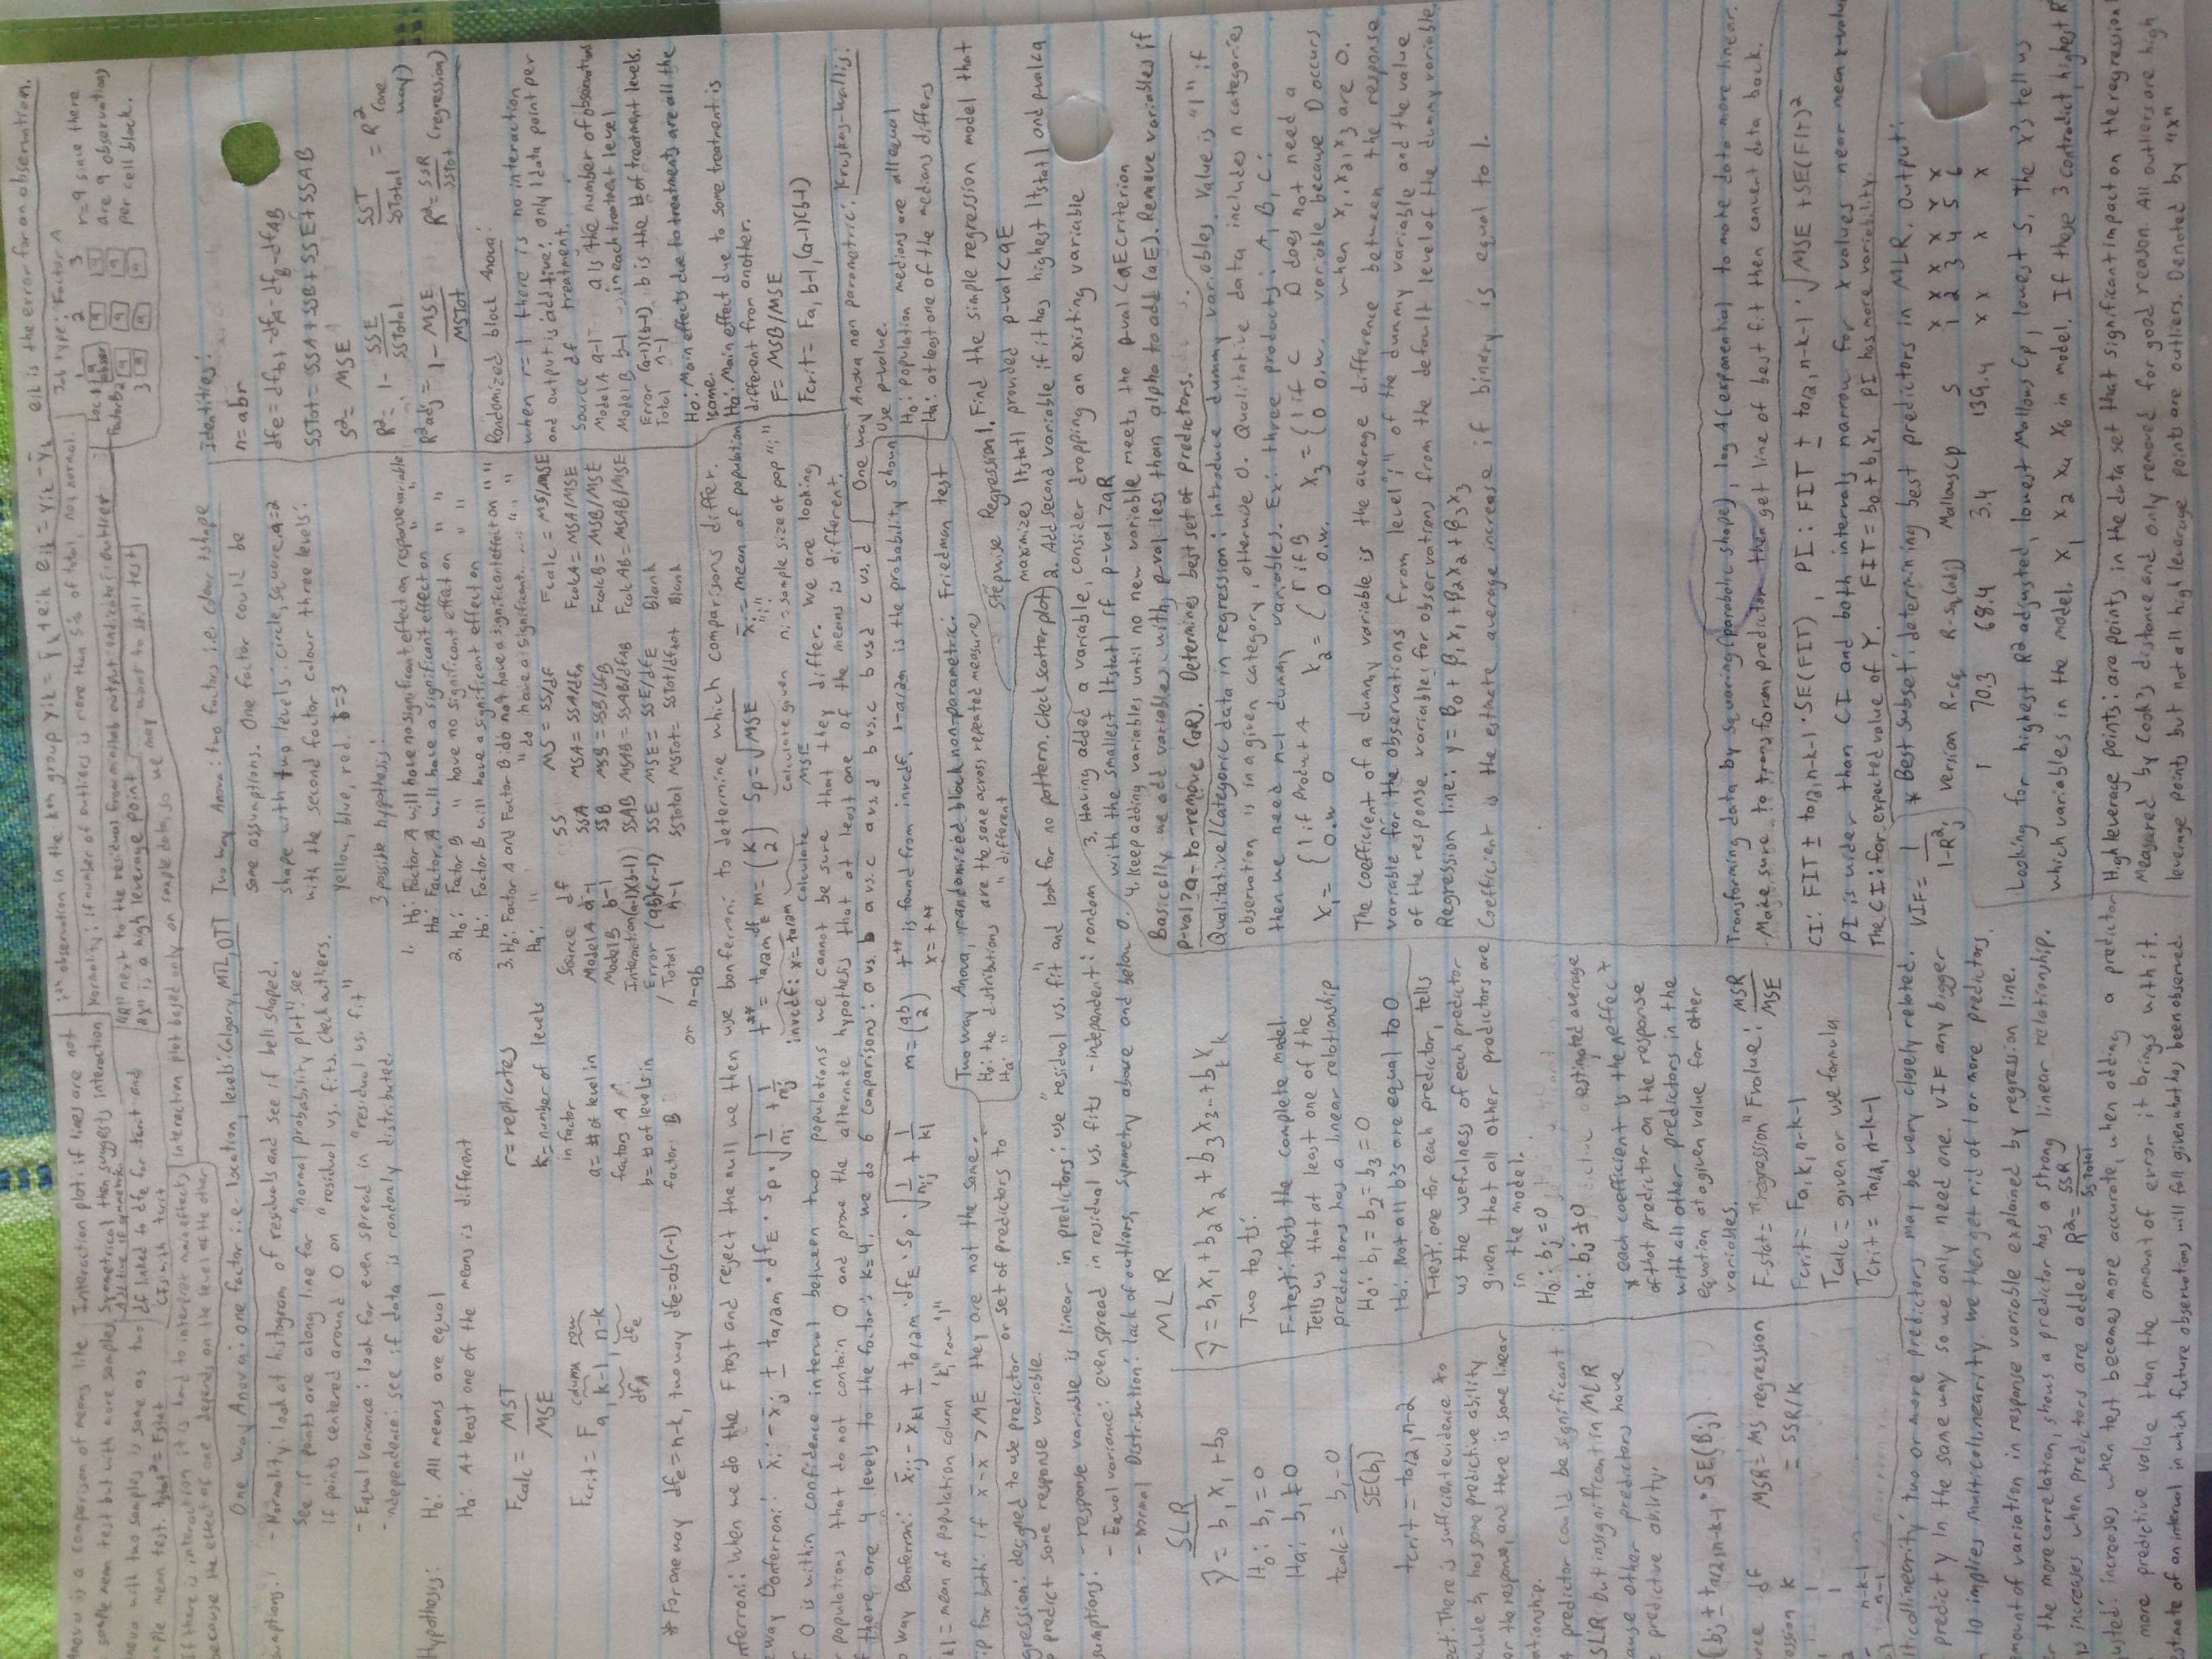 Anova is a comparison of means like
sample mean test but with more samples.
Anova with two samples is same as two
sample mean test. tstat² = Fstat
If there is interaction it is hard to interpret main effects
because the effect of one depends on the level of the other
Interaction plot: if lines are not
symmetrical then suggests interaction
Additive if symmetric
df linked to dfe for tcrit and
CIs with tcrit
ith observation in the kth group yik = ȳk + eik eik = yik - ȳk eik is the error for an observation.
Normality: if number of outliers is more than 5% of total, not normal.
"R" next to the residual from minitab output indicate outlier
"X" is a high leverage point
interaction plot based only on sample data, so we may want to still test
Job type: Factor A
1 2 3
r=9 since there
are 9 observations
per cell block.
Factor B 2
3
One way Anova: one factor i.e. location, levels: Calgary, MTL, OTT
- Normality: look at histogram of residuals and see if bell shaped.
See if points are along line for "normal probability plot". see
if points centered around 0 on "residual vs. fits". Check outliers.
- Equal Variance: look for even spread in "residual vs. fit"
- independence: see if data is randomly distributed.
Hypothesis: Ho: All means are equal
Ha: At least one of the means is different
Fcalc = MST / MSE
Fcrit = F a, k-1, n-k
dfA dfe
r = replicates
k = number of levels
in factor
a = # of level in
factors A
b = # of levels in
factor B
* For one way dfe = n-k, two way dfe = ab(r-1) or n-ab
Two way Anova: two factors i.e. colour + shape
same assumptions. One factor could be
shape with two levels: circle, square. a=2
with the second factor colour three levels:
yellow, blue, red. b=3
3 possible hypothesis:
1. Ho: Factor A will have no significant effect on response variable
Ha: Factor A will have a significant effect on " "
2. Ho: Factor B " have no significant effect on " "
Ha: Factor B will have a significant effect on " "
3. Ho: Factor A and Factor B do not have a significant effect on " "
Ha: " " do have a significant.... " "
Source df SS MS = SS/df Fcalc = MS/MSE
Model A a-1 SSA MSA = SSA/dfA FcalcA = MSA/MSE
Model B b-1 SSB MSB = SSB/dfB FcalcB = MSB/MSE
Interaction (a-1)(b-1) SSAB MSAB = SSAB/dfAB FcalcAB = MSAB/MSE
Error (ab)(r-1) SSE MSE = SSE/dfE Blank
Total n-1 SSTotal MSTot = SSTot/dftot Blank
identities:
n = abr
dfe = dftot - dfA - dfB - dfAB
SSTot = SSA + SSB + SSE + SSAB
S² = MSE
R² = 1 - SSE / SSTotal SST / SSTotal = R² (one way)
R²adj = 1 - MSE / MSTot R² = SSR / SSTot (regression)
Randomized block Anova:
when r=1 there is no interaction
and output is additive: only 1 data point per
treatment.
Source df
Model A a-1 a is the number of observations
in each treatment level
Model B b-1
Error (a-1)(b-1), b is the # of treatment levels.
Total n-1
Ho: Main effects due to treatments are all the
same.
Ha: Main effect due to some treatment is
different from another.
F = MSB/MSE
Fcrit = Fa, b-1, (a-1)(b-1)
Bonferroni: When we do the F test and reject the null we then use bonferroni to determine which comparisons differ.
way Bonferroni: x̄i - x̄j ± ta/2m, dfE · Sp · √(1/ni + 1/nj) t** = ta/2m dfE m = (k 2) Sp = √MSE x̄i = mean of population "i"
invcdf: x = ta/2m calculate calculate given MSE ni = sample size of pop "i"
If 0 is within confidence interval between two populations we cannot be sure that they differ. We are looking
for populations that do not contain 0 and prove the alternate hypothesis that at least one of the means is different.
if there are 4 levels to the factor: k=4, we do 6 comparisons: a vs. b a vs. c a vs. d b vs. c b vs d c vs. d
way Bonferroni: x̄ij - x̄kl ± ta/2m · dfE · Sp · √(1/nij + 1/kl) m = (ab 2) t** is found from invcdf, 1-a/2m is the probability shown x = t**
kl = mean of population column "k", row "l"
tip for both: if x̄ - x̄ > ME they are not the same.
One way Anova non parametric: Kruskas-wallis:
Use p-value.
Ho: population medians are all equal
Ha: at least one of the medians differs
Two way Anova, randomized block non-parametric: Friedman test
Ho: the distributions are the same across repeated measure
Ha: " " " different
Regression: designed to use predictor or set of predictors to
predict some response variable.
Assumptions: - response variable is linear in predictors: use "residual vs. fit" and look for no pattern. Check scatter plot
- Equal variance: even spread in residual vs. fits - independent: random
- Normal Distribution: lack of outliers, symmetry above and below 0.
Stepwise Regression 1. Find the simple regression model that
maximizes |tstat| provided p-val < aE
2. Add second variable if it has highest |tstat| and pval < a
3. Having added a variable, consider dropping an existing variable
with the smallest |tstat| if p-val > aR
4. Keep adding variables until no new variable meets the p-val < aE criterion
Basically we add variables with p-val less than alpha to add (aE). Remove variables if
p-val > a-to-remove (aR). Determines best set of predictors.
SLR
ŷ = b1x1 + b0
Ho: b1 = 0
Ha: b1 ≠ 0
tcalc = b1 - 0 / SE(b1)
tcrit = ta/2, n-2
ect. There is sufficient evidence to
clude b, has some predictive ability
or the response, and there is some linear
ationship.
A predictor could be significant
SLR but insignificant in MLR
ause other predictors have
predictive ability.
(bj ± ta/2, n-k-1 · SE(Bj))
MLR
ŷ = b1x1 + b2x2 + b3x3 ... + bkxk
Two tests:
F-test: tests the complete model.
Tells us that at least one of the
predictors has a linear relationship
Ho: b1 = b2 = b3 = 0
Ha: Not all b's are equal to 0
T-test: one for each predictor, tells
us the usefulness of each predictor
given that all other predictors are
in the model.
Ho: bj = 0
Ha: bj ≠ 0
* each coefficient is the estimated average effect
of that predictor on the response
with all other predictors in the
equation at a given value for other
variables.
F-stat = "regression" F value: MSR / MSE
Fcrit = Fa, k, n-k-1
Tcalc = given or use formula
Tcrit = ta/2, n-k-1
MSR = MS regression
= SSR/k
df
ession k
n-k-1
n-1
Qualitative/Categoric data in regression: introduce dummy variables. Value is "1" if
observation is in a given category, otherwise 0. Qualitative data includes n categories
then we need n-1 dummy variables. Ex: three products: A, B, C:
X1 = {1 if product A X2 = {1 if B X3 = {1 if C D does not need a
0 o.w. 0 o.w. 0 o.w. variable because D occurs
when x1, x2, x3 are 0.
The coefficient of a dummy variable is the average difference between the response
variable for the observations from level "i" of the dummy variable and the value
of the response variable for observations from the default level of the dummy variable.
Regression line: y = β0 + β1x1 + β2x2 + β3x3
Coefficient is the estimate average increase if binary is equal to 1.
Transforming data by squaring (parabolic shape), log A (exponential) to make data more linear.
- Make sure to transform predictor then get line of best fit then convert data back.
CI: FIT ± ta/2, n-k-1 · SE(FIT), PI: FIT ± ta/2, n-k-1 · √MSE + SE(FIT)²
PI is wider than CI and both intervals narrow for x values near mean x value
The CI: for expected value of Y. FIT = b0 + b1x1 PI has more variability.
Multicollinearity: two or more predictors may be very closely related.
predict y in the same way so we only need one. VIF any bigger
10 implies multicollinearity. we then get rid of 1 or more predictors.
VIF = 1 / 1-R²j
* Best subset: determining best predictors in MLR. Output:
version R-sq R-sq(adj) Mallows cp S X X X X X X
1 2 3 4 5 6
1 70.3 68.4 3.4 139.4 x x x x
Looking for highest R² adjusted, lowest Mallows Cp, lowest S, the x's tell us
which variables in the model. x1 x2 x4 x6 in model. If these 3 contradict, highest R²
amount of variation in response variable explained by regression line.
er the more correlation, shows a predictor has a strong linear relationship.
ys increases when predictors are added R² = SSR / SSTotal
justed: increases when test becomes more accurate, when adding a predictor
more predictive value than the amount of error it brings with it.
estimate of an interval in which future observations will fall given what has been observed.
High leverage points: are points in the data set that significant impact on the regression
Measured by Cook's distance and only removed for good reason. All outliers are high
leverage points but not all high leverage points are outliers. Denoted by "x"